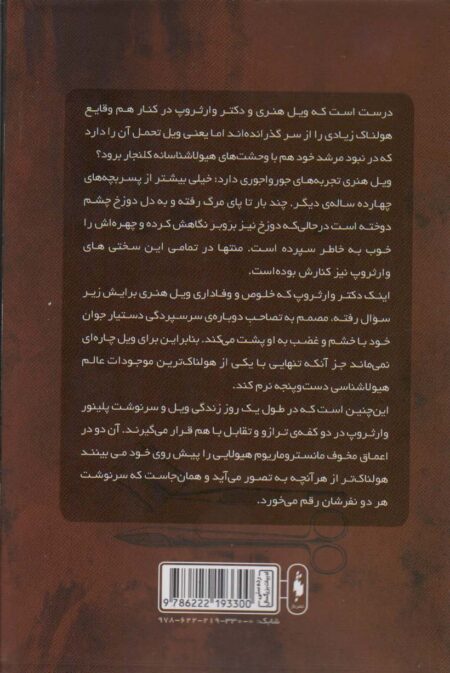 درست است که ویل هنری و دکتر وارثروپ در کنار هم وقایع
هولناک زیادی را از سر گذرانده‌اند اما یعنی ویل تحمل آن را دارد
که در نبود مرشد خود هم با وحشت‌های هیولاشناسانه کلنجار برود؟
ویل هنری تجربه‌های جورواجوری دارد؛ خیلی بیشتر از پسربچه‌های
چهارده ساله‌ی دیگر. چند بار تا پای مرگ رفته و به دل دوزخ چشم
دوخته است درحالی‌که دوزخ نیز بروبر نگاهش کرده و چهره‌اش را
خوب به خاطر سپرده است. منتها در تمامی این سختی های
وارثروپ نیز کنارش بوده‌است.
اینک دکتر وارثروپ که خلوص و وفاداری ویل هنری برایش زیر
سوال رفته، مصمم به تصاحب دوباره‌ی سرسپردگی دستیار جوان
خود با خشم و غضب به او پشت می‌کند. بنابراین برای ویل چاره‌ای
نمی‌ماند جز آنکه تنهایی با یکی از هولناک‌ترین موجودات عالم
هیولاشناسی دست‌وپنجه نرم کند.
این‌چنین است که در طول یک روز زندگی ویل و سرنوشت پلینور
وارثروپ در دو کفه‌ی ترازو و تقابل با هم قرار می‌گیرند. آن دو در
اعماق مخوف مانستروماریوم هیولایی را پیش روی خود می بینند
هولناک‌تر از هرآنچه به تصور می‌آید و همان‌جاست که سرنوشت
هر دو نفرشان رقم می‌خورد.
9 786222 193300
شابک: ۹۷۸-۶۲۲-۲۱۹-۳۳۰-۰